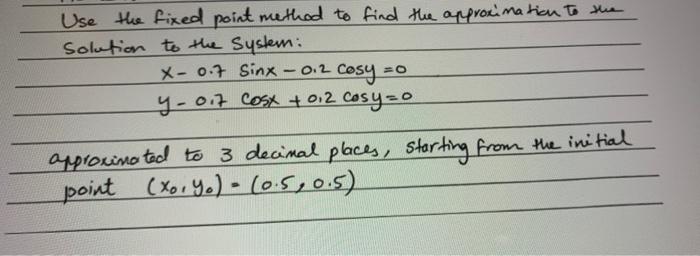 Use the fixed point method to find the approximation to the
Solution to the System:
x - 0.7 Sinx - 0.2 Cosy = 0
y - 0.7 Cosx + 0.2 Cosy = 0
approximated to 3 decimal places, Starting from the initial
point (x₀, y₀) = (0.5, 0.5)